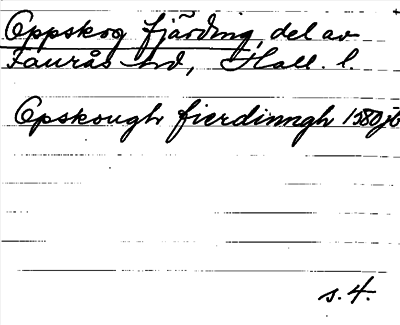 Oppskog fjärding, del av
Faurås hd, Hall. l.
Opskough fierdinngh 1580 jb
s. 4.